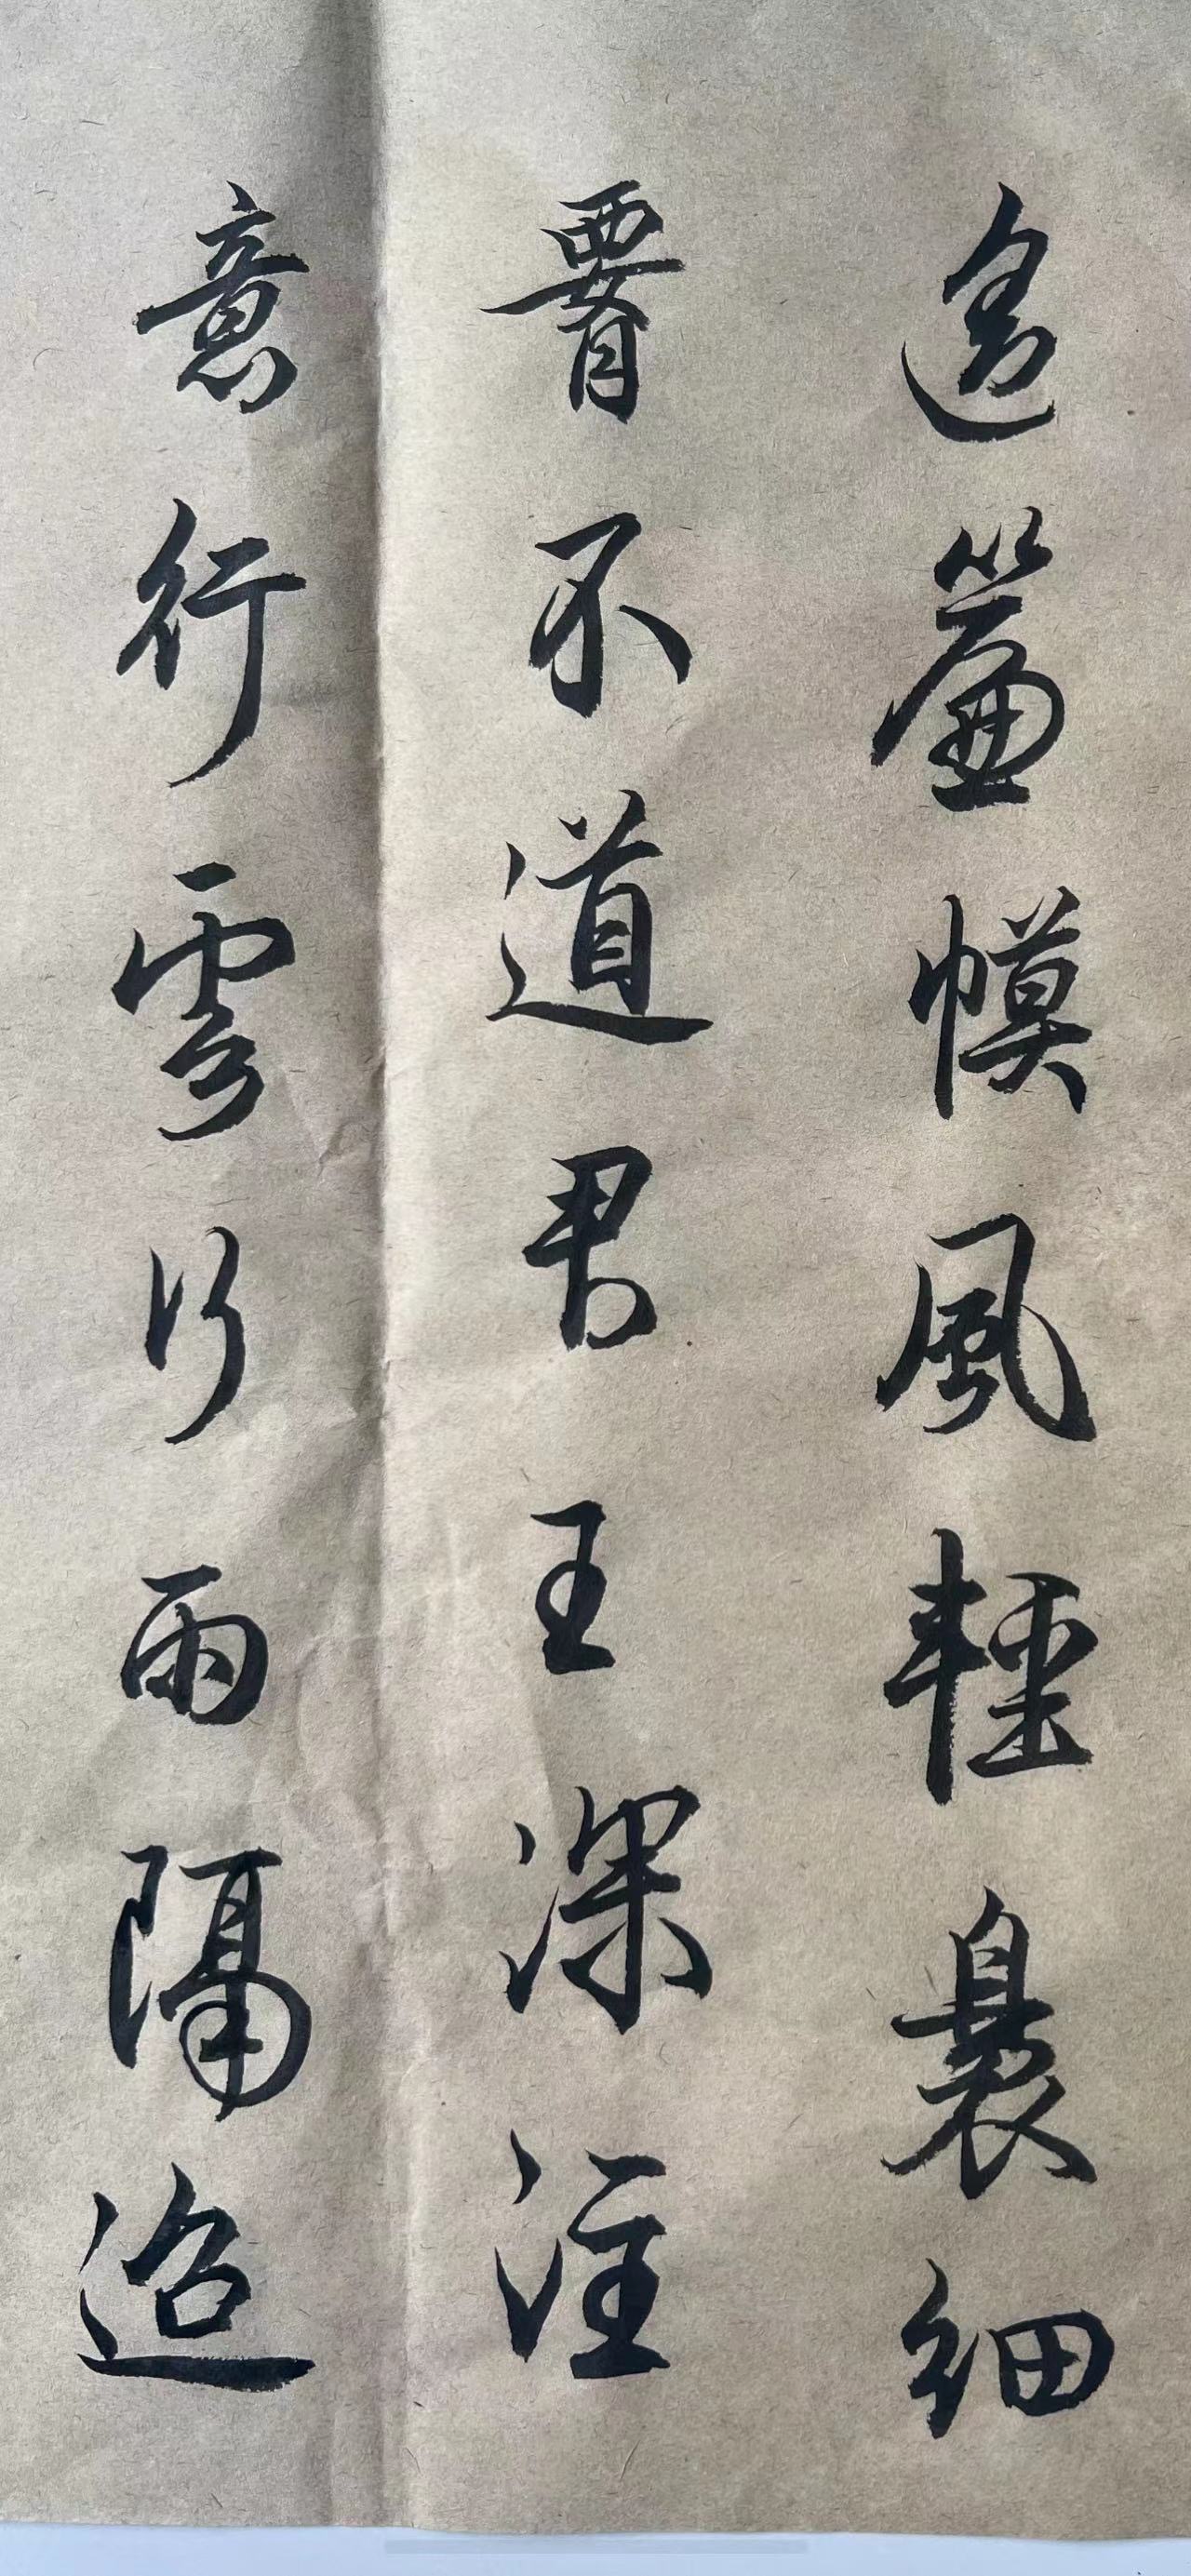 透簾幙風輕裊細
腰不道君王深注
意行雲行雨隔迢